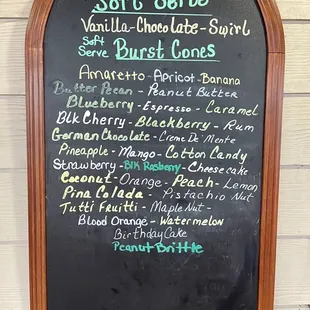 Soft Serve
Vanilla-Chocolate-Swirl
Soft Serve Burst Cones
Amaretto-Apricot-Banana
Butter Pecan-Peanut Butter
Blueberry-Espresso-Caramel
BLK Cherry-Blackberry-Rum
German Chocolate-Creme De Mente
Pineapple-Mango-Cotton Candy
Strawberry-Blk Rasberry-Cheesecake
Coconut-Orange-Peach-Lemon
Pina Colada-Pistachio Nut
Tutti Fruitti-Maple Nut-
Blood Orange-Watermelon
Birthday Cake
Peanut Brittle